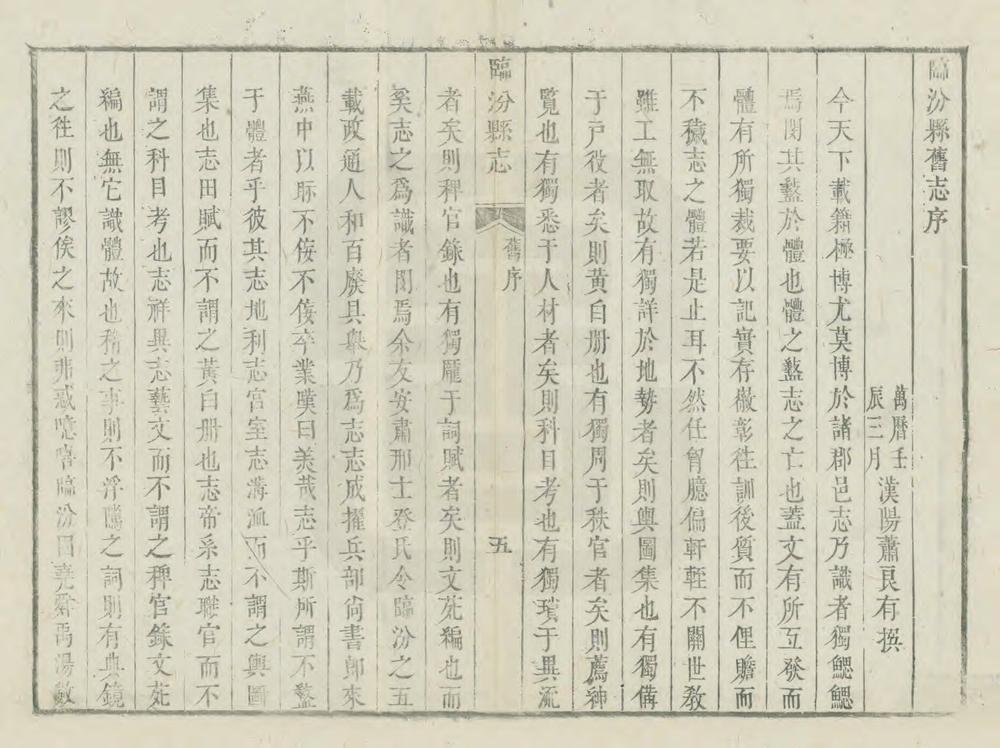 臨汾縣舊志序
萬曆壬辰三月漢陽蕭良有撰
今天下載籍極博尤莫博於諸郡邑志乃識者獨鰓鰓
焉閔其盭於體也體之盭志之亡也蓋文有所互發而
體有所獨裁要以記實存徵彰徃訓後質而不俚贍而
不穢志之體若是止耳不然任胷臆偏軒輊不關世敎
雖工無取故有獨詳於地勢者矣則輿圖集也有獨備
于戸役者矣則黄白册也有獨周于秩官者矣則薦紳
覽也有獨悉于人材者矣則科目考也有獨瑣于異流
臨汾縣志
舊序
五
者矣則稗官錄也有獨厖于詞賦者矣則文苑編也而
奚志之爲識者閔焉余友安肅邢士登氏令臨汾之五
載政通人和百廢具舉乃爲志志成擢兵部尙書郎來
燕中以眎不佞不佞卒業嘆曰美哉志乎斯所謂不盭
于體者乎彼其志地利志官室志溝洫而不謂之輿圖
集也志田賦而不謂之黄白册也志帝系志職官而不
謂之科目考也志祥異志藝文而不謂之稗官錄文苑
編也無它識體故也稽之事則不浮隲之詞則有典鏡
之徃則不謬俟之來則弗惑噫嘻臨汾曰堯舜禹湯敷